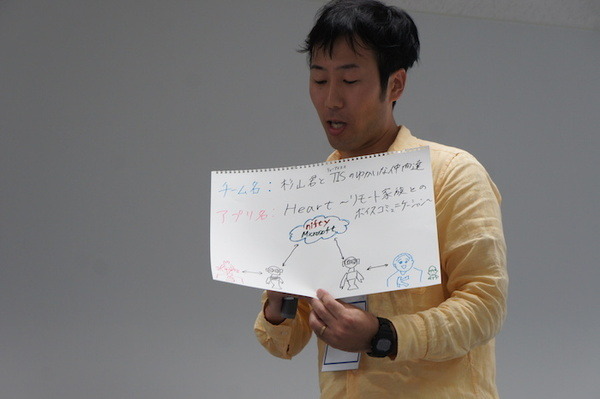 チーム名：杉山君とTISのゆかいな仲間達
アプリ名：Heart 〜リモート家族との
ボイスコミュニケーション〜
nifty
Microsoft